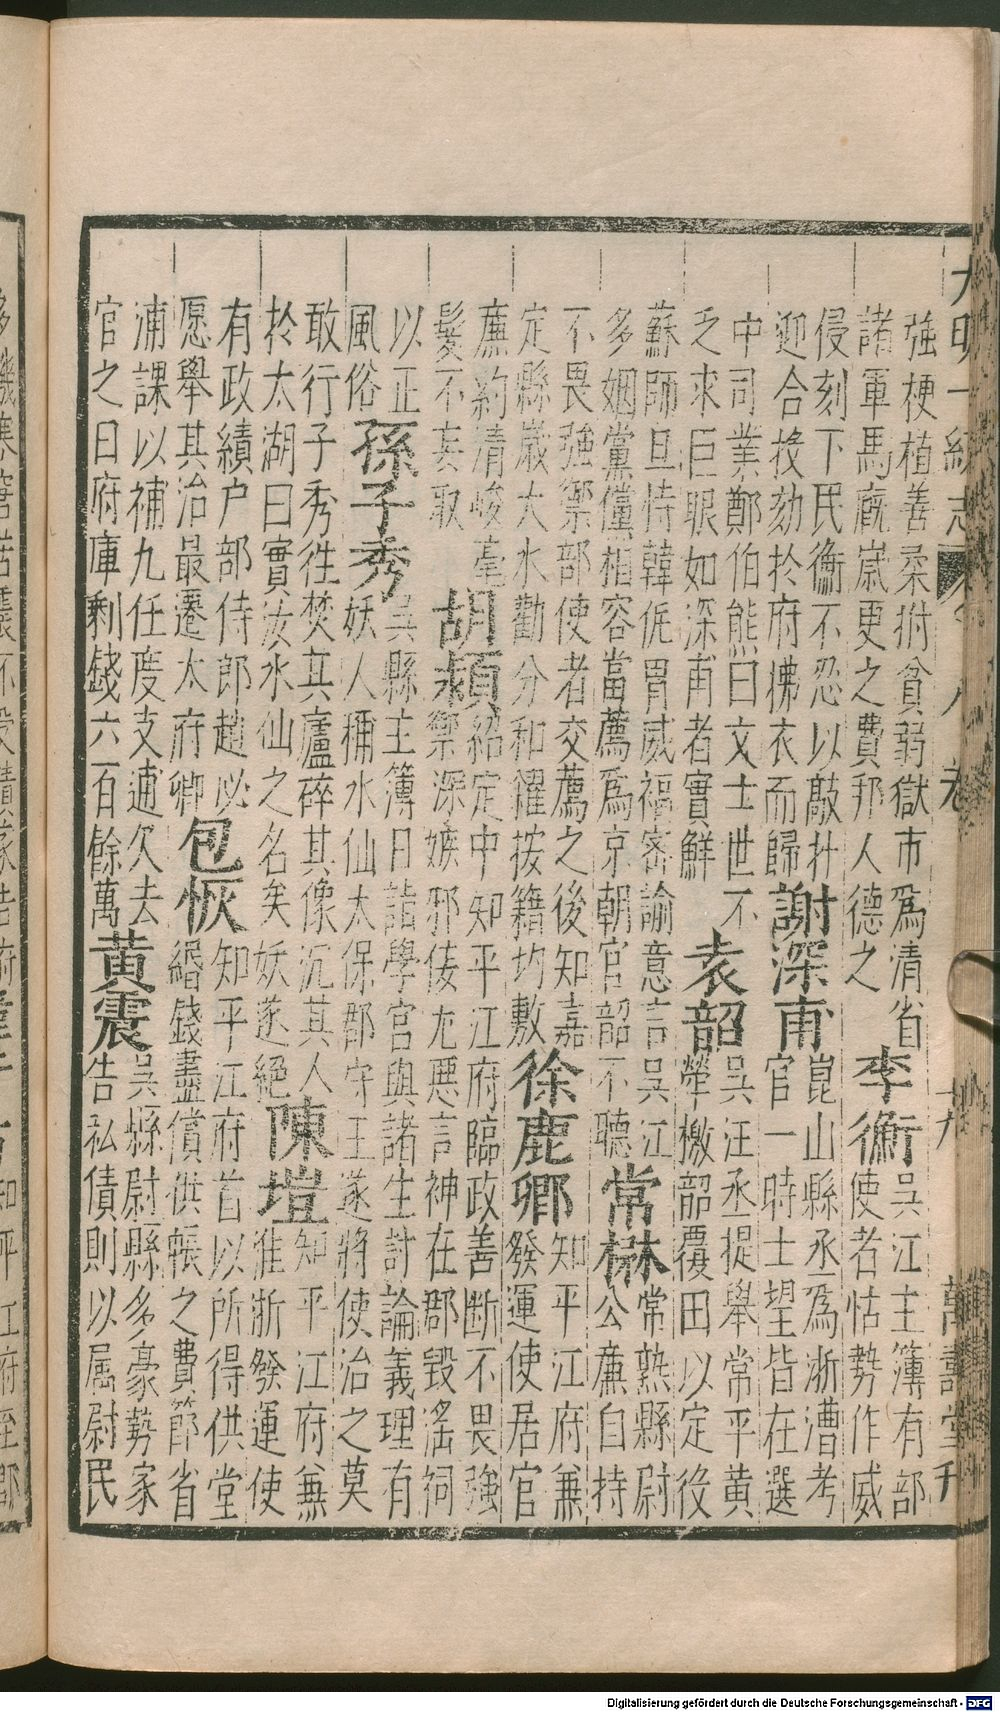 大明一統志
十九
萬壽堂刊
強梗植善柔拊貧弱獄市爲清省
諸軍馬廐歳更之費邦人德之
李衡
吳江主簿有部
使者怙勢作威
侵刻下民衡不忍以敲扑
迎合投劾於府拂衣而歸
謝深甫
崑山縣丞爲浙漕考
官一時士望皆在選
中司業鄭伯熊曰文士世不
乏求巨眼如深甫者實鮮
袁韶
吳汪丞提舉常平黃
犖檄韶覆田以定役
蘇師旦恃韓侂冑威福密諭意言吳江
多姻黨儻相容當薦爲京朝官韶不聽
常楙
常熟縣尉
公廉自持
不畏強禦部使者交薦之後知嘉
定縣歳大水勸分和糴按籍均敷
徐鹿卿
知平江府兼
發運使居官
廉約清峻毫
髮不妄取
胡頴
紹定中知平江府臨政善斷不畏強
禦深嫉邪倭尤惡言神在郡毀淫祠
以正
風俗
孫子秀
吳縣主簿日詣學官與諸生討論義理有
妖人稱水仙太保郡守王遂將使治之莫
敢行子秀徃焚其廬碎其像沉其人
於太湖曰實汝水仙之名矣妖遂絶
陳塏
知平江府兼
淮浙發運使
有政績户部侍郎趙必
愿舉其治最遷太府卿
包恢
知平江府首以所得供堂
緡錢盡償供帳之費節省
浦課以補九任度支逋欠去
官之日府庫剩錢六百餘萬
黃震
吳縣尉縣多豪勢家
告私債則以属尉民
Digitalisierung gefördert durch die Deutsche Forschungsgemeinschaft - DFG